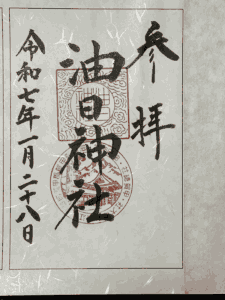 参拝
油日神社
令和七年一月二十八日